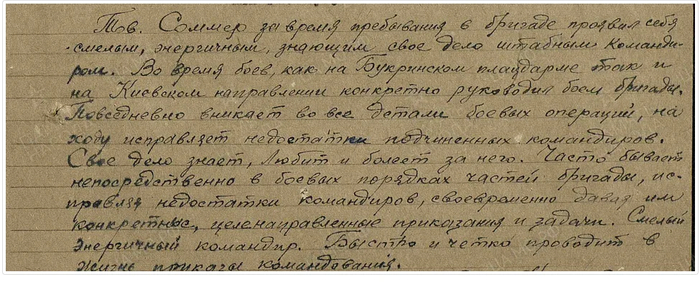 Тов. Соммер за время пребывания в бригаде проявил себя
смелым, энергичным, знающим свое дело штабным команди-
ром. Во время боев, как на Букринском плацдарме так и
на Киевском направлении конкретно руководил боем бригады.
Повседневно вникает во все детали боевых операций, на
ходу исправляет недостатки подчиненных командиров.
Свое дело знает, любит и болеет за него. Часто бывает
непосредственно в боевых порядках частей бригады, ис-
правляя недостатки командиров, своевременно давая им
конкретные, целенаправленные приказания и задачи. Смелый
энергичный командир. Быстро и четко проводит в
жизнь приказы командования.